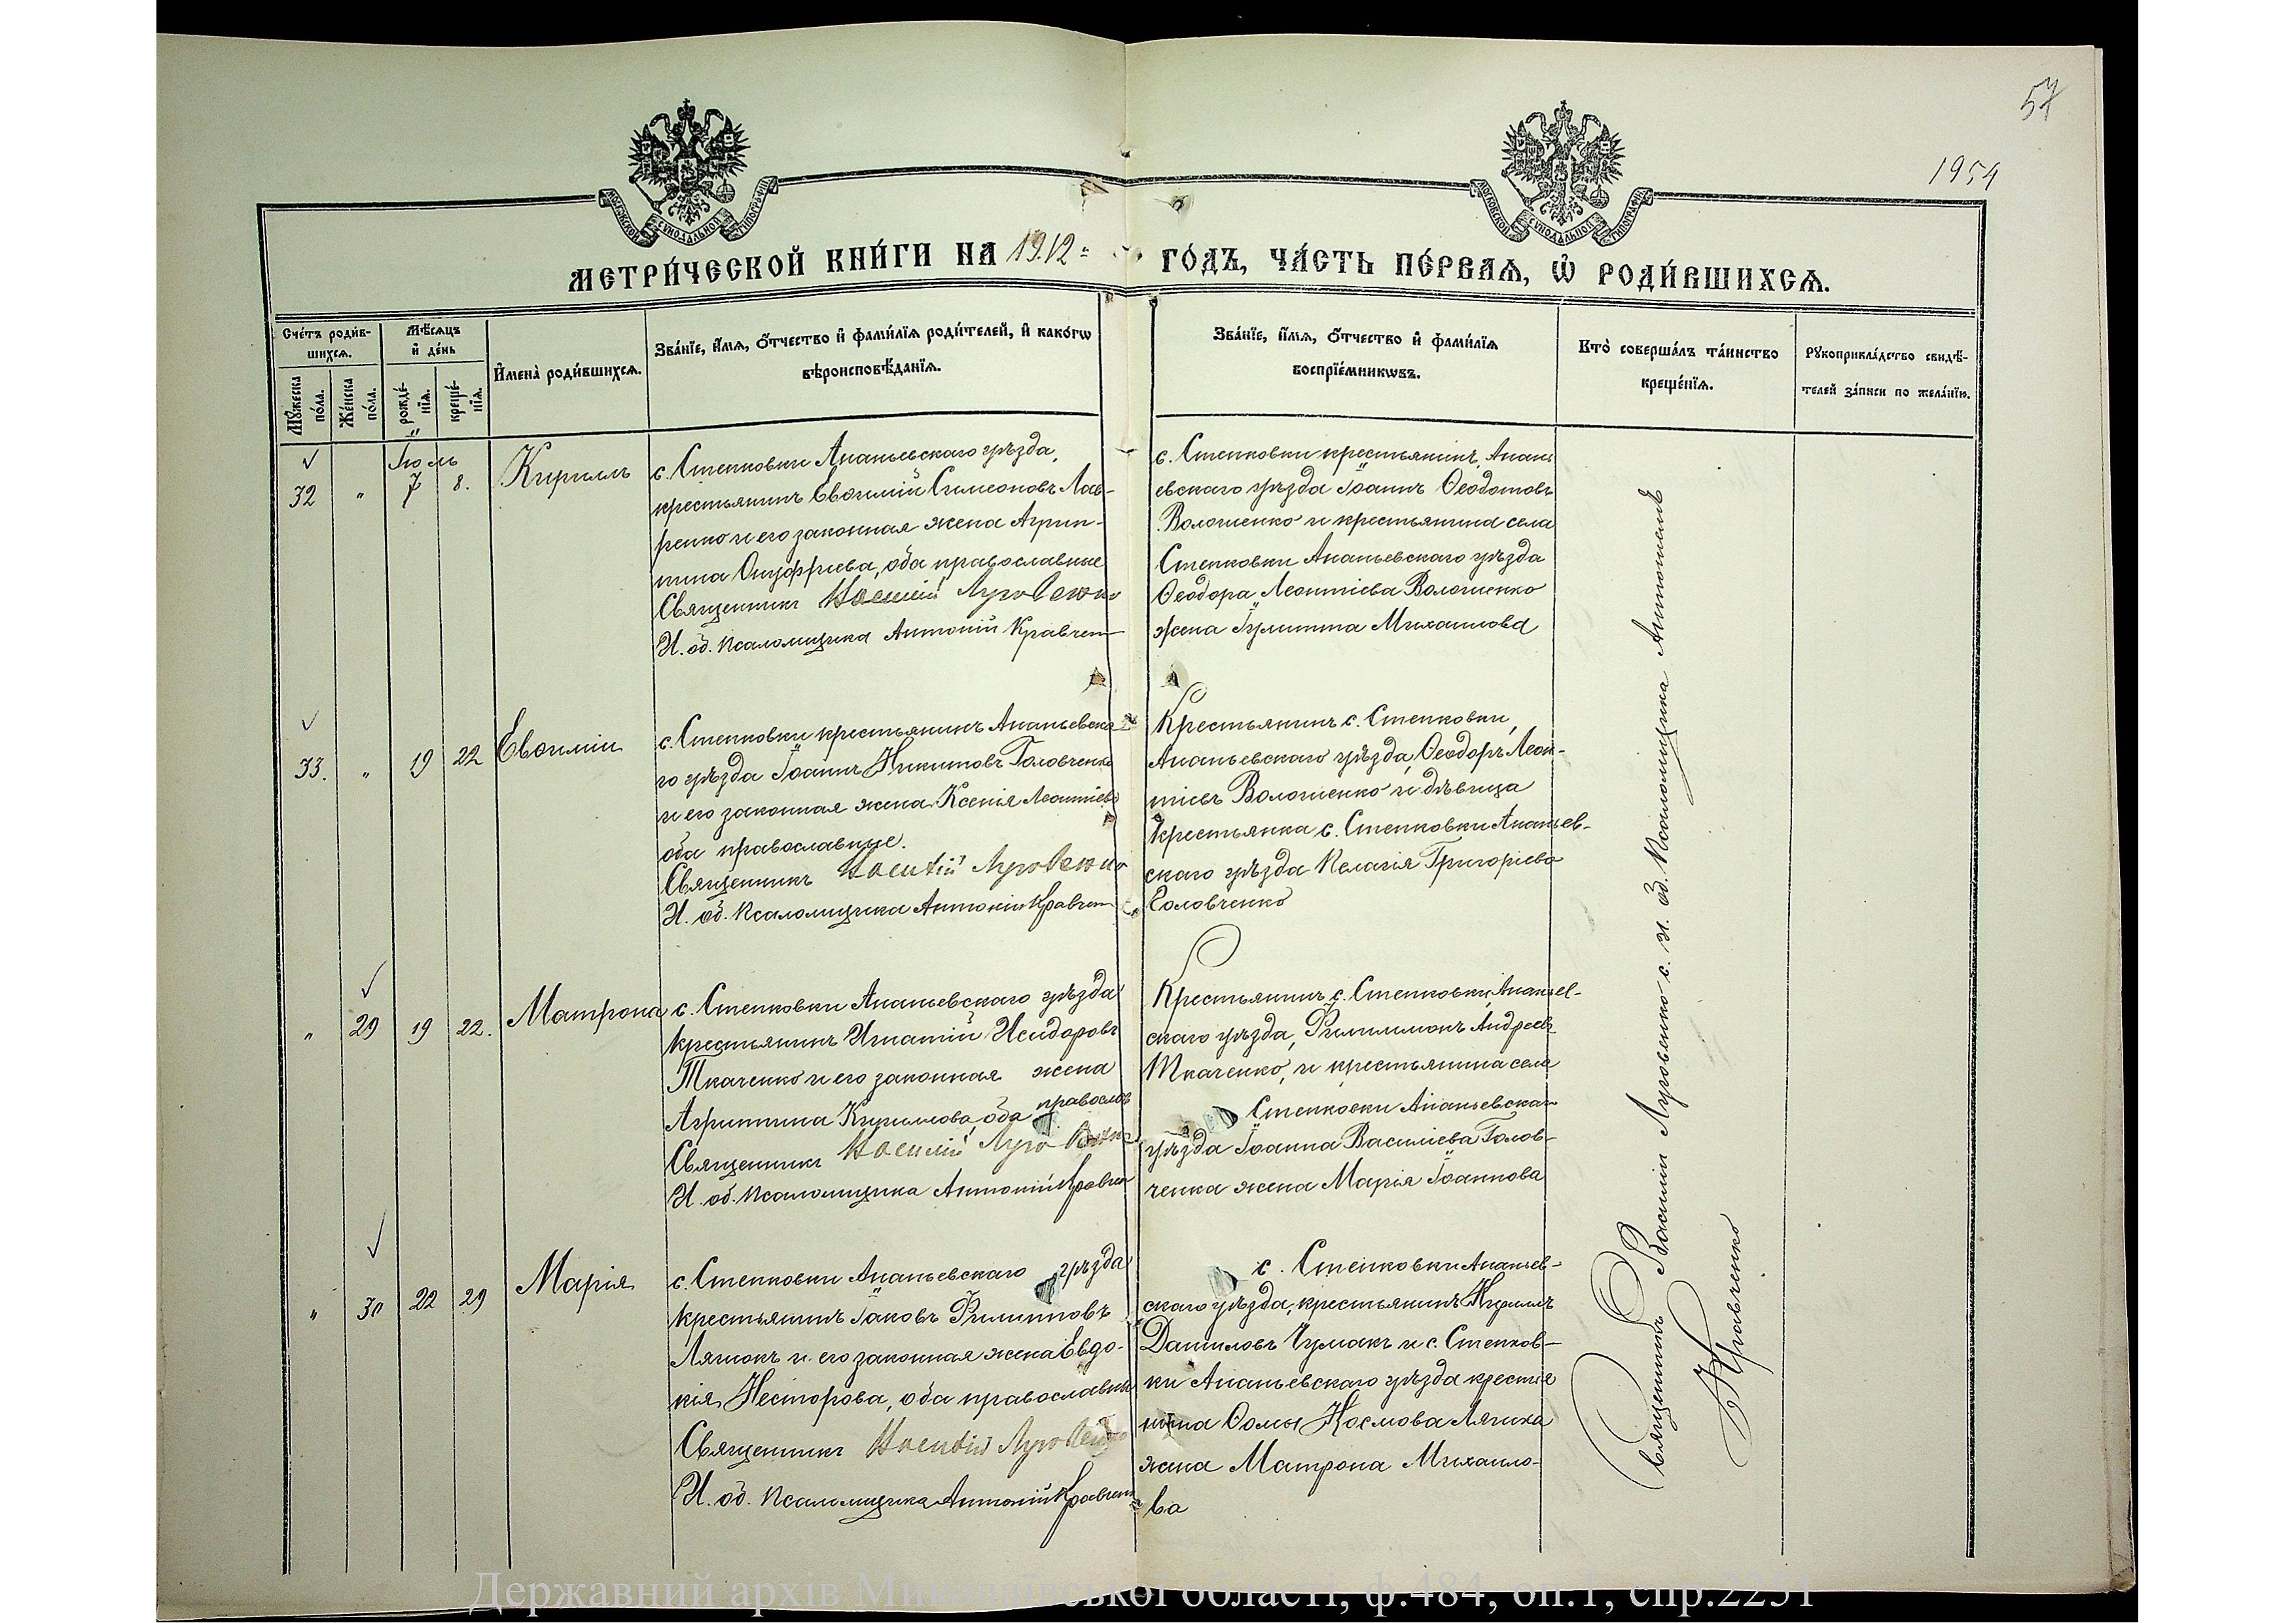 57
1954
МЕТРИ́ЧЕСКОЙ КНИ́ГИ НА 1912 ГО́ДЪ, ЧА́СТЬ ПЕ́РВАѦ, Ѽ РОДИ́ВШИХСѦ.
Сче́тъ роди́в-
шихсѧ.
Мꙋжеска по́ла.
Же́нска по́ла.
Мѣ́сѧцъ и де́нь
рожде́-нїѧ.
креще́-нїѧ.
Имена̀ роди́вшихсѧ.
Зва́нїе, и́мѧ, ѻ́тчество и фами́лїѧ роди́телей, и како́гѡ
вѣроисповѣ́данїѧ.
Зва́нїе, и́мѧ, ѻ́тчество и фами́лїѧ
воспрїе́мникѡвъ.
Кто̀ соверша́лъ та́инство
креще́нїѧ.
Рꙋкоприкла́дство свидѣ́-
телей за́писи по жела́нїю.
Іюль
32 " 7 8. Кириллъ
с. Степковки Ананьевскаго уѣзда,
крестьянинъ Евѳимій Симеоновъ Лав-
ренко и его законная жена Агрип-
пина Онуффріева, оба православные
Священникъ Василій Луговенко
И. об. Псаломщика Антоній Кравчен
с. Степковки крестьянинъ, Анань
евскаго уѣзда Іоаннъ Ѳеодотовъ
Волошенко и крестьянина села
Степковки Ананьевскаго уѣзда
Ѳеодора Леонтіева Волошенко
жена Іулитта Михаилова
33. " 19 22 Евѳимій
с. Степковки крестьянинъ Ананьевска
го уѣзда Іоаннъ Никитовъ Головченко
и его законная жена Ксенія Леонтіева
оба православные.
Священникъ Василій Луговенко
И. об. Псаломщика Антоній Кравчен
Крестьянинъ с. Степковки,
Ананьевскаго уѣзда, Ѳеодоръ Леон-
тіевъ Волошенко и дѣвица
крестьянка с. Степковки Ананьев-
скаго уѣзда Пелагія Григоріева
Головченко
" 29 19 22. Матрона
с. Степковки Ананьевскаго уѣзда
крестьянинъ Игнатій Исидоровъ
Ткаченко и его законная жена
Агриппина Кириллова, оба православ
Священникъ Василій Луговенко
И. об. Псаломщика Антоній Кравчен
Крестьянинъ с. Степковки, Ананьев-
скаго уѣзда, Филимонъ Андреевъ
Ткаченко, и крестьянина села
Степковки Ананьевскаго
уѣзда Іоанна Василіева Голов-
ченка жена Марія Іоаннова
" 30 22 29 Марія
с. Степковки Ананьевскаго уѣзда
крестьянинъ Іаковъ Филипповъ
Ляшокъ и его законная жена Евдо-
кія Несторова, оба православны
Священникъ Василій Луговенко
И. об. Псаломщика Антоній Кравчен
с. Степковки Ананьев-
скаго уѣзда, крестьянинъ Кириллъ
Даниловъ Чумакъ и с. Степков-
ки Ананьевскаго уѣзда крестья
нина Ѳомы Космова Ляшка
жена Матрона Михаило-
ва
Священникъ Василій Луговенко с. и. об. Псаломщика Антоніемъ
Кравченко
Державний архів Миколаївської області, ф.484, оп.1, спр.2251